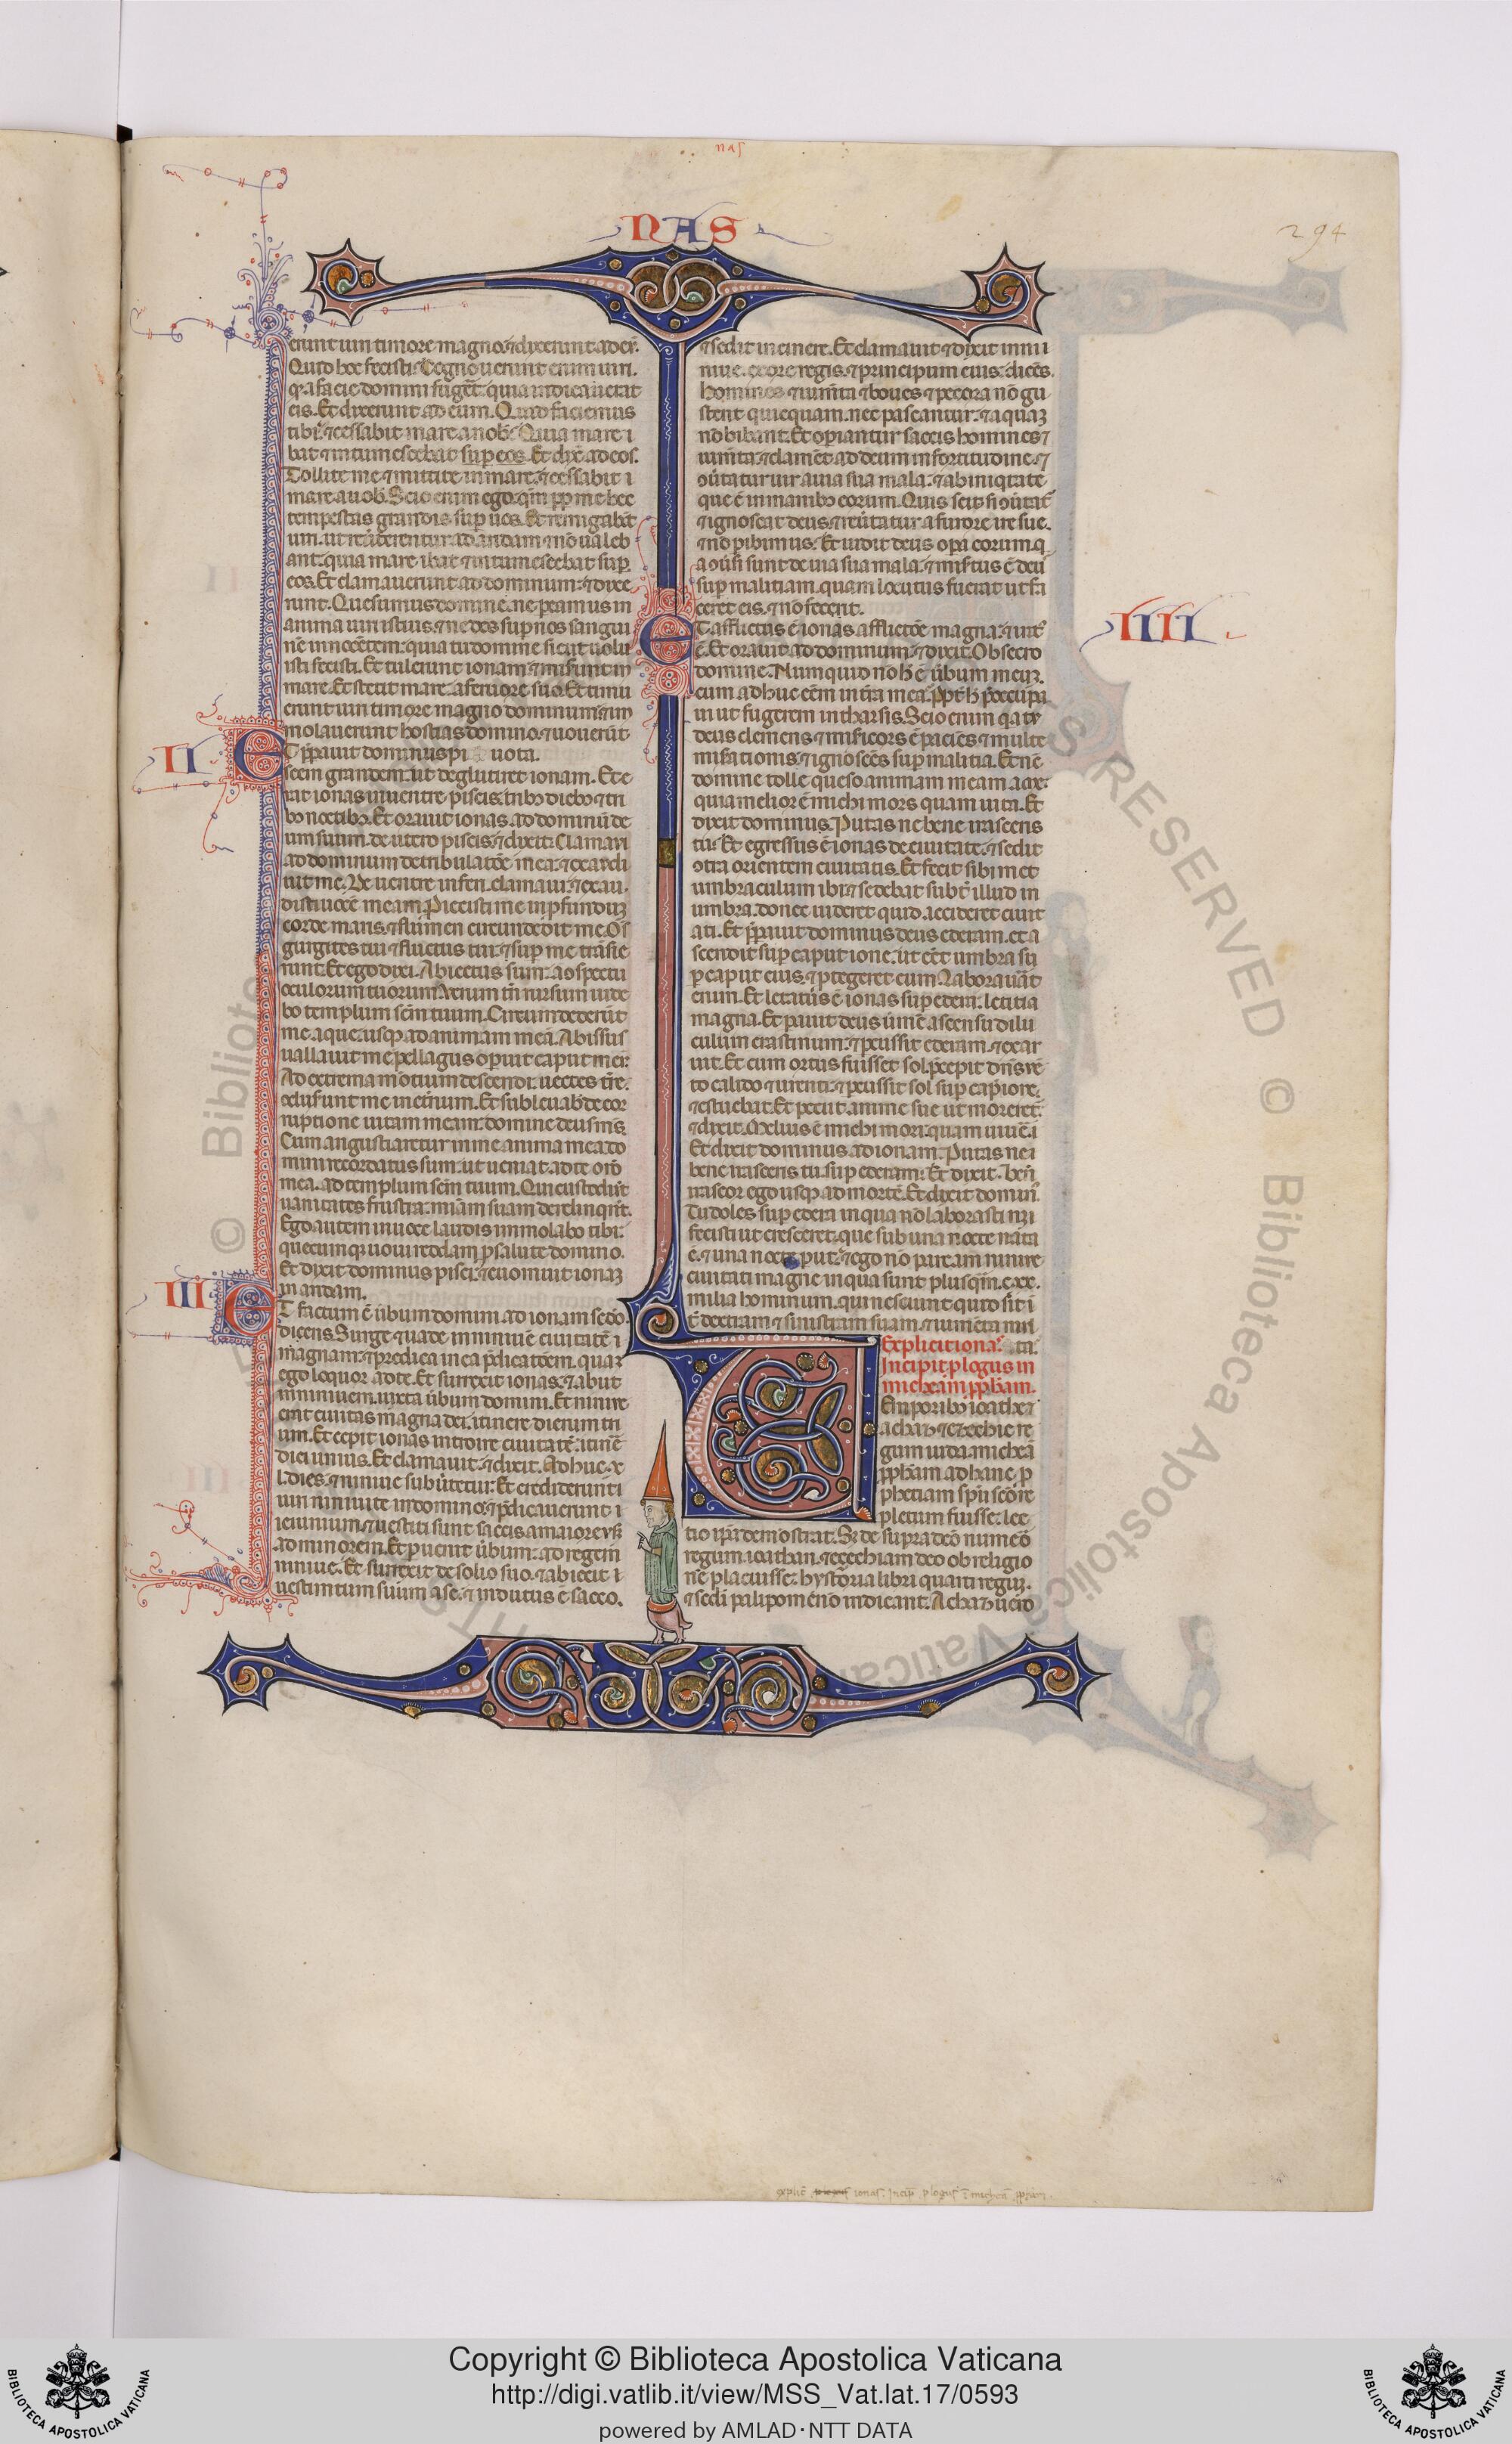 nas
NAS
294
erunt uiri timore magno. ⁊ dixerunt ad eū.
Quid hoc fecisti? Cognouerunt enim uiri.
qꝛ a facie domini fugēt: quia indicauerat
eis. Et dixerunt ad eum. Quid faciemus
tibi. ⁊ cessabit mare a nob̄? Quia mare i
bat ⁊ intumescebat suꝑ eos. Et dix̄ ad eos.
Tollite me ⁊ mittite in mare. ⁊ cessabit i
mare a uob̄. Scio enim ego. qm̄ ꝓꝑ me hec
tempestas grandis suꝑ uos. Et remigabāt
uiri. ut reūterentur ad aridam. ⁊ nō ualeb
ant: quia mare ibat ⁊ intumescebat suꝑ
eos. Et clamauerunt ad dominum: ⁊ dixe
runt. Quesumus domine. ne ꝑeamus in
anima uiri istius. ⁊ ne des suꝑ nos sangui
nē innocētem: quia tu domine sicut uolu
isti fecisti. Et tulerunt ionam. ⁊ miserunt in
mare. Et stetit mare. a feruore suo. Et timu
erunt uiri timore magno dominum: ⁊ im
molauerunt hostias domino. ⁊ uouerūt
II
ET p̄parauit dominus pi uota.
scem grandem. ut deglutiret ionam. Et e
rat ionas in uentre piscis. tribꝫ diebꝫ ⁊ tri
bꝫ noctibꝫ. Et orauit ionas. ad dominū de
um suum. de utero piscis. ⁊ dixit. Clamaui
ad dominum de tribulatōe mea. ⁊ exaudi
uit me. De uentre inferi clamaui. ⁊ exau.
disti uocē meam. Proiecisti me in ꝓfundūꝫ
corde maris. ⁊ flumen circundedit me. Oīs
gurgites tui ⁊ fluctus tui: ⁊ suꝑ me trāsie
runt. Et ego dixi. Abiectus sum: a ɔspectu
oculorum tuorum. Uerum tn̄ rursum uide
bo templum scm̄ tuum. Circumdederūt
me aque. usqꝫ ad animam meā. Abissus
uallauit me. pellagus oꝑuit caput meū:
Ad extrema motium descendi. uectes tr̄e.
ɔcluserunt me in et̄num. Et subleuab̄ de cor
ruptione uitam meam: domine deus ms̄.
Cum angustiaretur in me anima mea. do
mini recordatus sum: ut ueniat ad te or̄o
mea. ad templum scm̄ tuum. Qui custodiūt
uanitates frustra: miām suam derelinqūt.
Ego autem in uoce laudis immolabo tibi.
quecumqꝫ uoui reddam ꝓ salute domino.
Et dixit dominus pisci. ⁊ euomuit ionaꝫ
in aridam.
III
ET factum ē ūbum domini ad ionam secdo.
dicens. Surge ⁊ uade in niniuē ciuitatē i
magnam: ⁊ predica in ea p̄dicatōem. quaꝫ
ego loquor ad te. Et surrexit ionas. ⁊ abiit
in niniuem. iuxta ūbum domini. Et niniue
erat ciuitas magna dei. itinere dierum tri
um. Et cepit ionas introire ciuitatē. itinē
diei unius. Et clamauit. ⁊ dixit. Adhuc x
l. dies. ⁊ niniue subūtetur. Et crediderunt i
uiri niniuite in domino. ⁊ p̄dicauerunt i
ieiunium. ⁊ uestiti sunt saccis a maiore usꝫ
ad minorem. Et ꝑuenit ūbum: ad regem
niniue. Et surrexit de solio suo. ⁊ abiecit i
uestimtum suum a se. ⁊ indutus ē sacco.
⁊ sedit in cinere. Et clamauit ⁊ dixit in nii
niue. ex ore regis. ⁊ principum eius. dicēs.
Homines ⁊ iumta ⁊ boues ⁊ pecora nō gu
stent quicquam. nec pascantur. ⁊ aquaꝫ
nō bibant. Et oꝑiantur saccis homines ⁊
iumta. ⁊ clamēt ad deum in fortitudine. ⁊
ɔūtatur uir a uia sua mala. ⁊ ab iniqtate
que ē in manibꝫ eorum. Quis scit si ɔūtat̄
⁊ ignoscat deus. ⁊ reūtatur a furore ire sue.
⁊ nō ꝑibimus. Et uidit deus oꝑa eorum. q
a ɔūsi sunt de uia sua mala. ⁊ misertus ē deus
suꝑ malitiam. quam locutus fuerat ut fa
ceret eis. ⁊ nō fecerit.
IIII
ET afflictus ē ionas afflictōe magna. ⁊ irat̄
ē. Et orauit ad dominum. ⁊ dixit. Obsecro
domine. Numquid nō h̄ ē ūbum meuꝫ.
cum adhuc eēm in tr̄a mea. ꝓpt̄ h̄ p̄occupa
ui ut fugerem in tharsis. Scio enim qa tu
deus clemens ⁊ misericors ē paciēs ⁊ multe
miserationis. ⁊ ignoscēs suꝑ malitia. Et nē
domine tolle queso animam meam a me:
quia melior ē michi mors quam uita. Et
dixit dominus. Putas ne bene irasceris
tu? Et egressus ē ionas de ciuitate. ⁊ sedit
ɔtra orientem ciuitatis. Et fecit sibi met
umbraculum ibi. ⁊ sedebat subt̄ illud in
umbra. donec uideret quid accideret ciuit
ati. Et p̄parauit dominus deus ederam. et a
scendit suꝑ caput ione. ut eēt umbra su
ꝑ caput eius. ⁊ ꝓtegeret eum. Laborauāt
enim. Et letatus ē ionas suꝑ ederā. letitia
magna. Et parauit deus ūmē ascensu dilu
culum crastinum: ⁊ ꝑcussit ederam. ⁊ exar
uit. Et cum ortus fuisset sol. p̄cepit dn̄s uē
to calido ⁊ urenti: ⁊ ꝑcussit sol suꝑ cap̄ ione.
⁊ estuebat. Et petiit anime sue ut moreret̄.
⁊ dixit. Melius ē michi mori: quam uiuē. i
Et dixit dominus ad ionam. Putas ne i
bene irasceris tu. suꝑ ederam? Et dixit. Bn̄
irascor ego usqꝫ ad mortē. Et dixit domin̄.
Tu doles suꝑ edera in qua nō laborasti. nꝫ i
fecisti ut cresceret. que sub una nocte nata
ē. ⁊ una nocte ꝑiit. ⁊ ego nō parcam niniue
ciuitati magne in qua sunt plusqm̄. c.xx.
milia hominum. qui nesciunt quid sit i
t̄ dextram ⁊ sinistram suam. ⁊ iumēta mul
Explicit ionas. ta.
Incipit ꝓlogus in
micheam ꝓph̄am.
Temporibꝫ ioathe ⁊
achaz ⁊ ezechie re
gum iuda. micheā
ꝓph̄am ad hanc ꝓ
phetiam spū scō re
pletum fuisse. lec
tio ip̄a demōstrat. Sꝫ de supra dcō numēo
regum. ioathan. ⁊ ezechiam deo ob religio
nē placuisse. hystoria libri quarti reguꝫ.
⁊ scdi palipomenō indicant. Achaz uero
explic̄ ionas. Incip̄ ꝓlogus ī micheā ꝓphām
© Biblioteca Apostolica Vaticana
RIGHTS RESERVED © Biblioteca Apostolica Vaticana
Copyright © Biblioteca Apostolica Vaticana
http://digi.vatlib.it/view/MSS_Vat.lat.17/0593
powered by AMLAD·NTT DATA
BIBLIOTECA APOSTOLICA VATICANA
BIBLIOTECA APOSTOLICA VATICANA